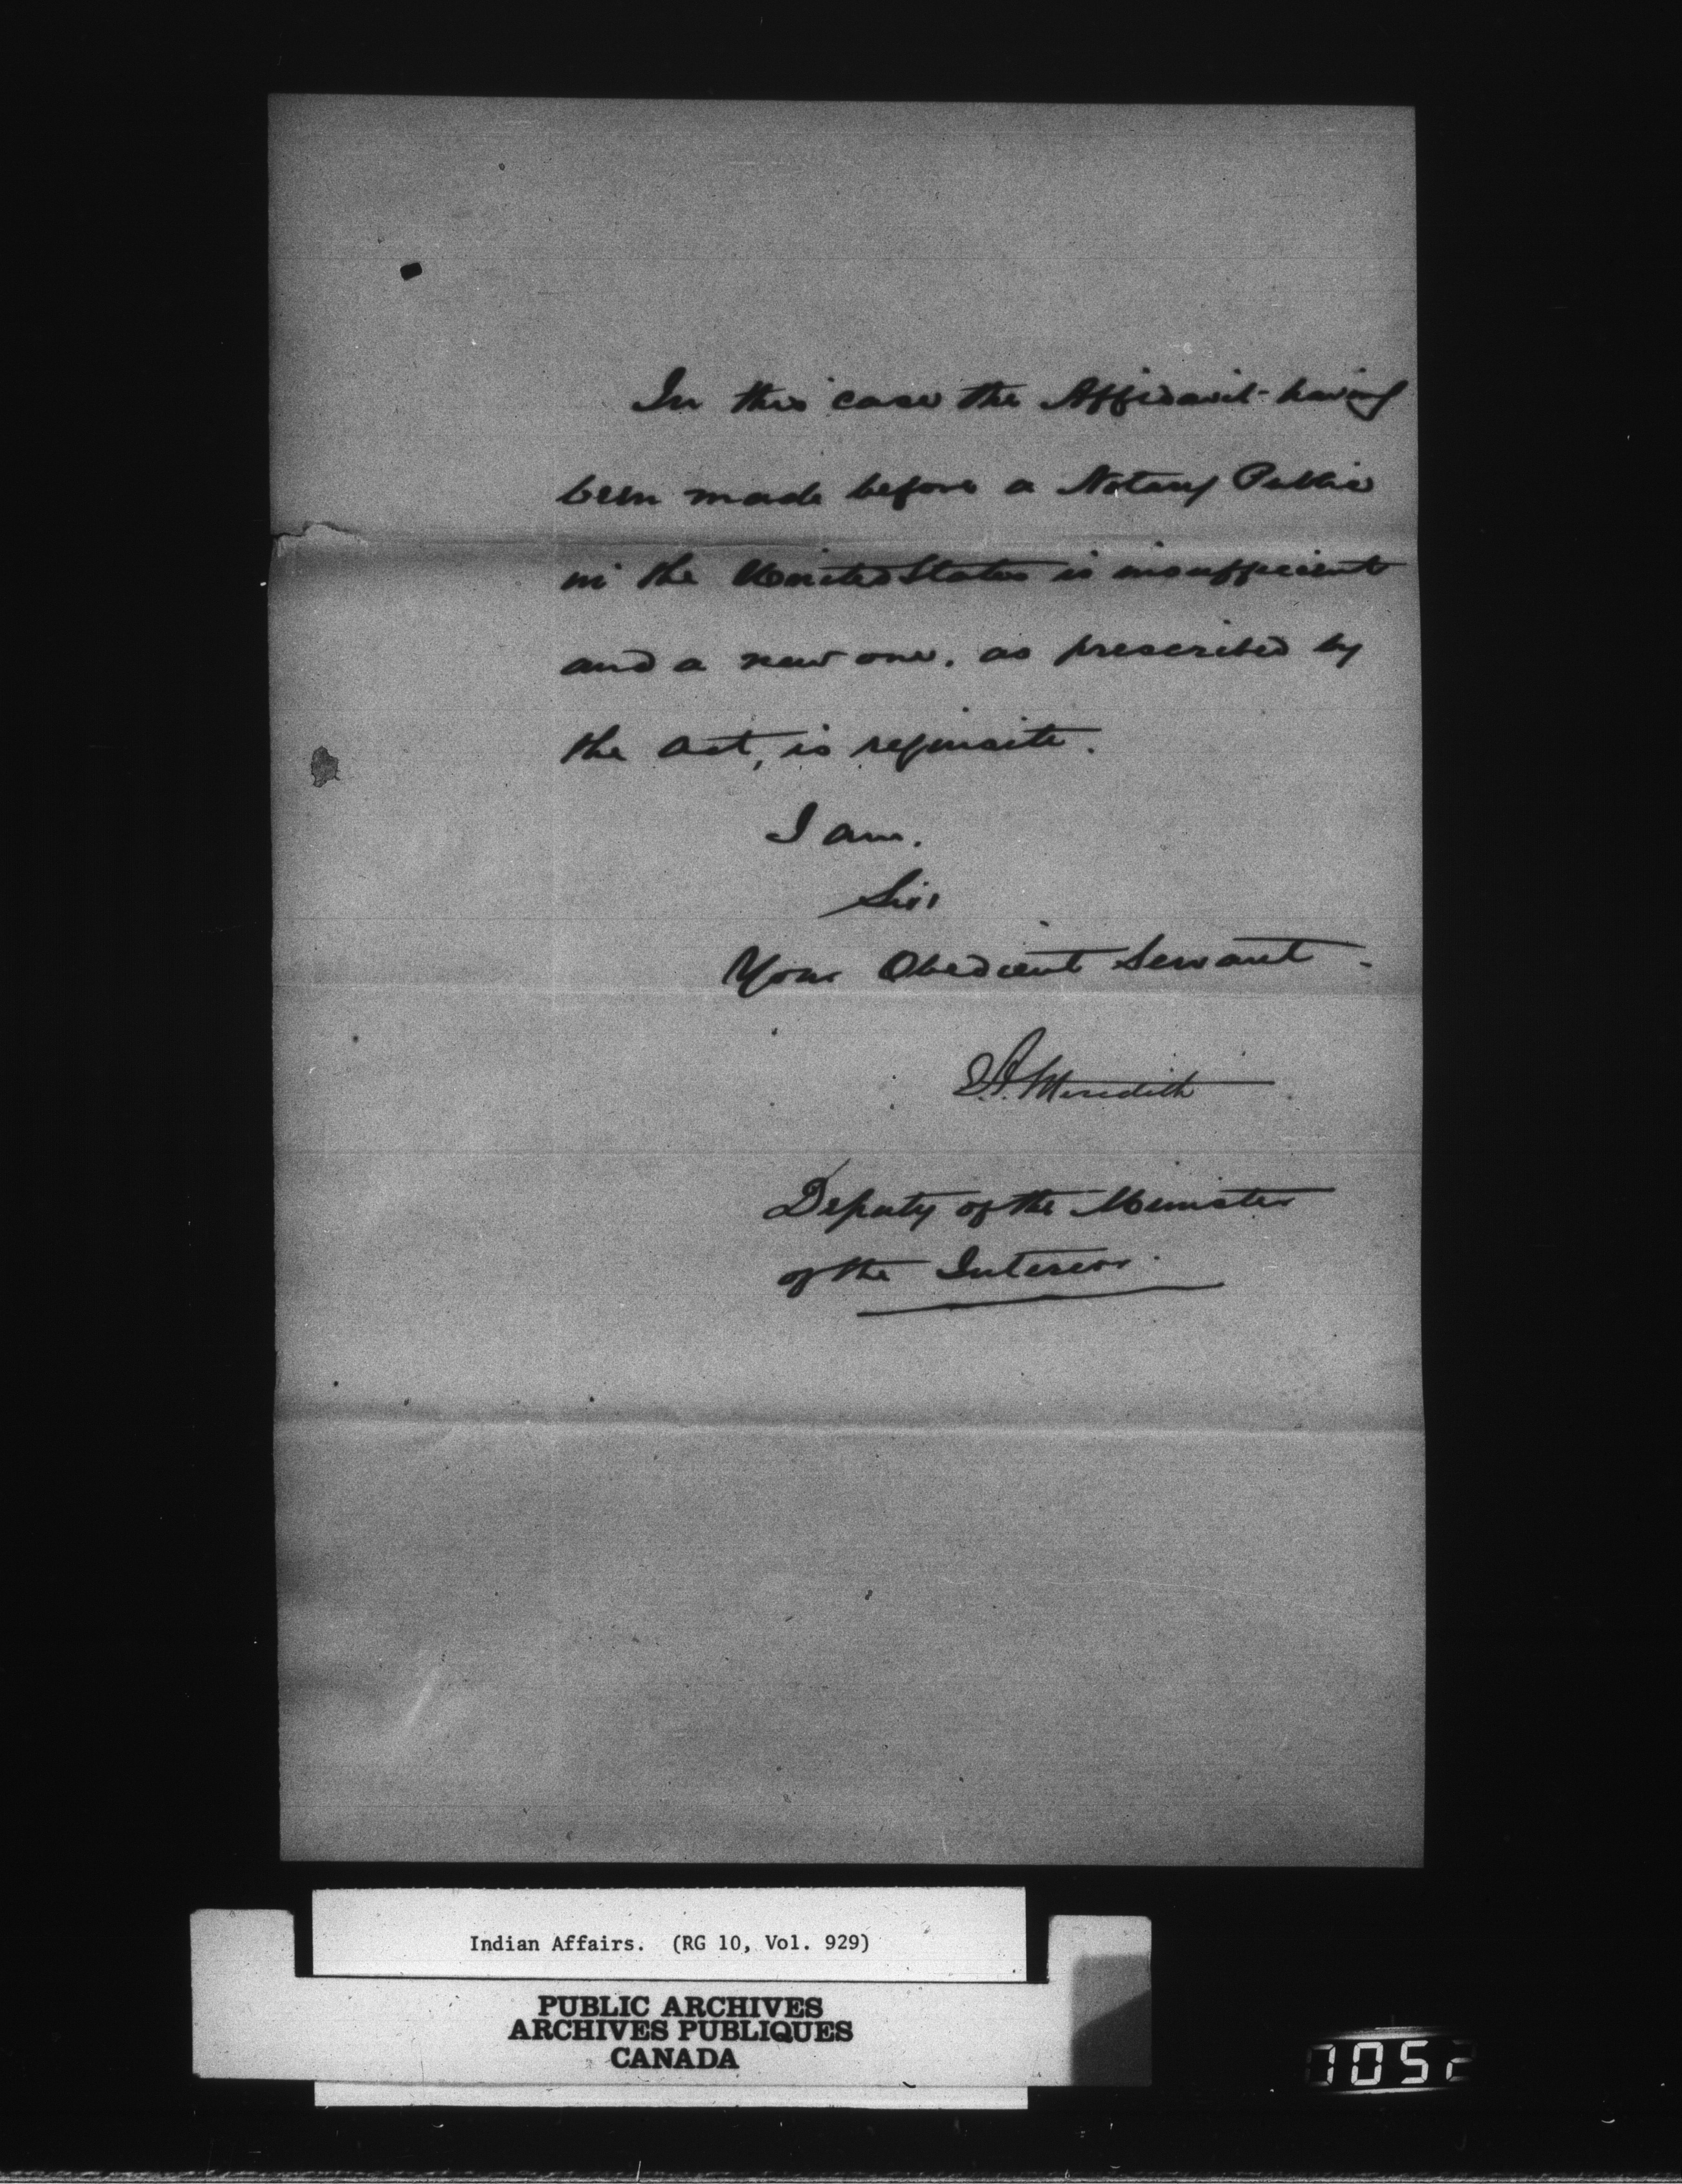 In this case the Affidavit having
been made before a Notary Public
in the United States is insufficient
and a new one, as prescribed by
the act, is requisite.
I am,
Sir,
Your Obedient Servant
E.A. Meredith
Deputy of the Minister
of the Interior.
Indian Affairs. (RG 10, Vol. 929)
PUBLIC ARCHIVES
ARCHIVES PUBLIQUES
CANADA
1052